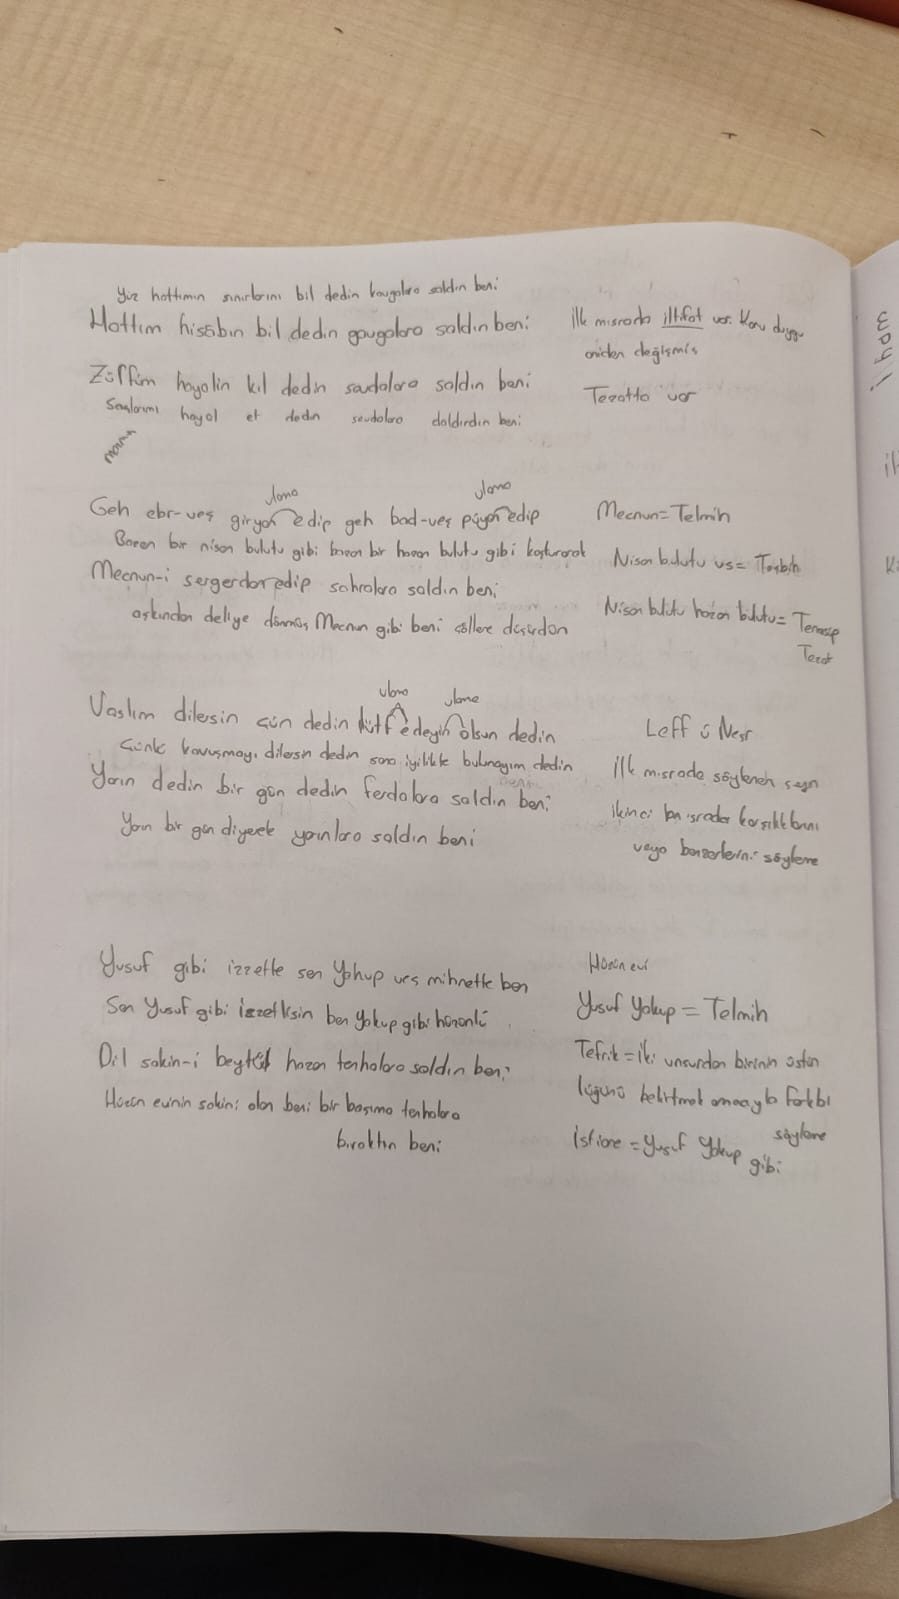 Yüz hattımın sınırlarını bil dedin kavgalara saldın beni
Hattım hisâbın bil dedin gavgalara saldın beni
İlk mısrada iltifat var. Konu duygu
aniden değişmiş
Zülfüm hayalin kıl dedin sevdalara saldın beni
Tezatta var
Saçlarımı hayal et dedin sevdalara daldırdın beni
ulama ulama
Geh ebr-veş giryan edip geh bad-veş püyan edip
Mecnun=Telmih
Bazen bir nisan bulutu gibi bazen bir hazan bulutu gibi koşturarak
Nisan bulutu vs= Teşbih
Mecnun-i sergerdan edip sahralara saldın beni
Nisan bulutu hazan bulutu= Tenasüp
Tezat
aşkından deliye dönmüş Mecnun gibi beni çöllere düşürdün
ulama ulama
Vaslım dilersin çün dedin lütf edeyin olsun dedin
Leff ü Neşr
Çünkü kavuşmayı dilersin dedin sana iyilikte bulunayım dedin
İlk mısrada söylenen şeyin
Yarın dedin bir gün dedin ferdalara saldın beni
ikinci mısrada karşılıklarını
Yarın bir gün diyerek yarınlara saldın beni
veya benzerlerini söyleme
Yusuf gibi izzette sen Yahup veş mihnette ben
Hüzün evi
Sen Yusuf gibi izzetlisin ben Yakup gibi hüzünlü
Yusuf Yakup = Telmih
Dil sakin-i beytül hazan tenhalara saldın beni
Tefrik = İki unsurdan birinin üstün
lüğünü belirtmek amacıyla farklı
söyleme
Hüzün evinin sakini olan beni bir başıma tenhalara
bıraktın beni
İstiare = Yusuf Yakup gibi